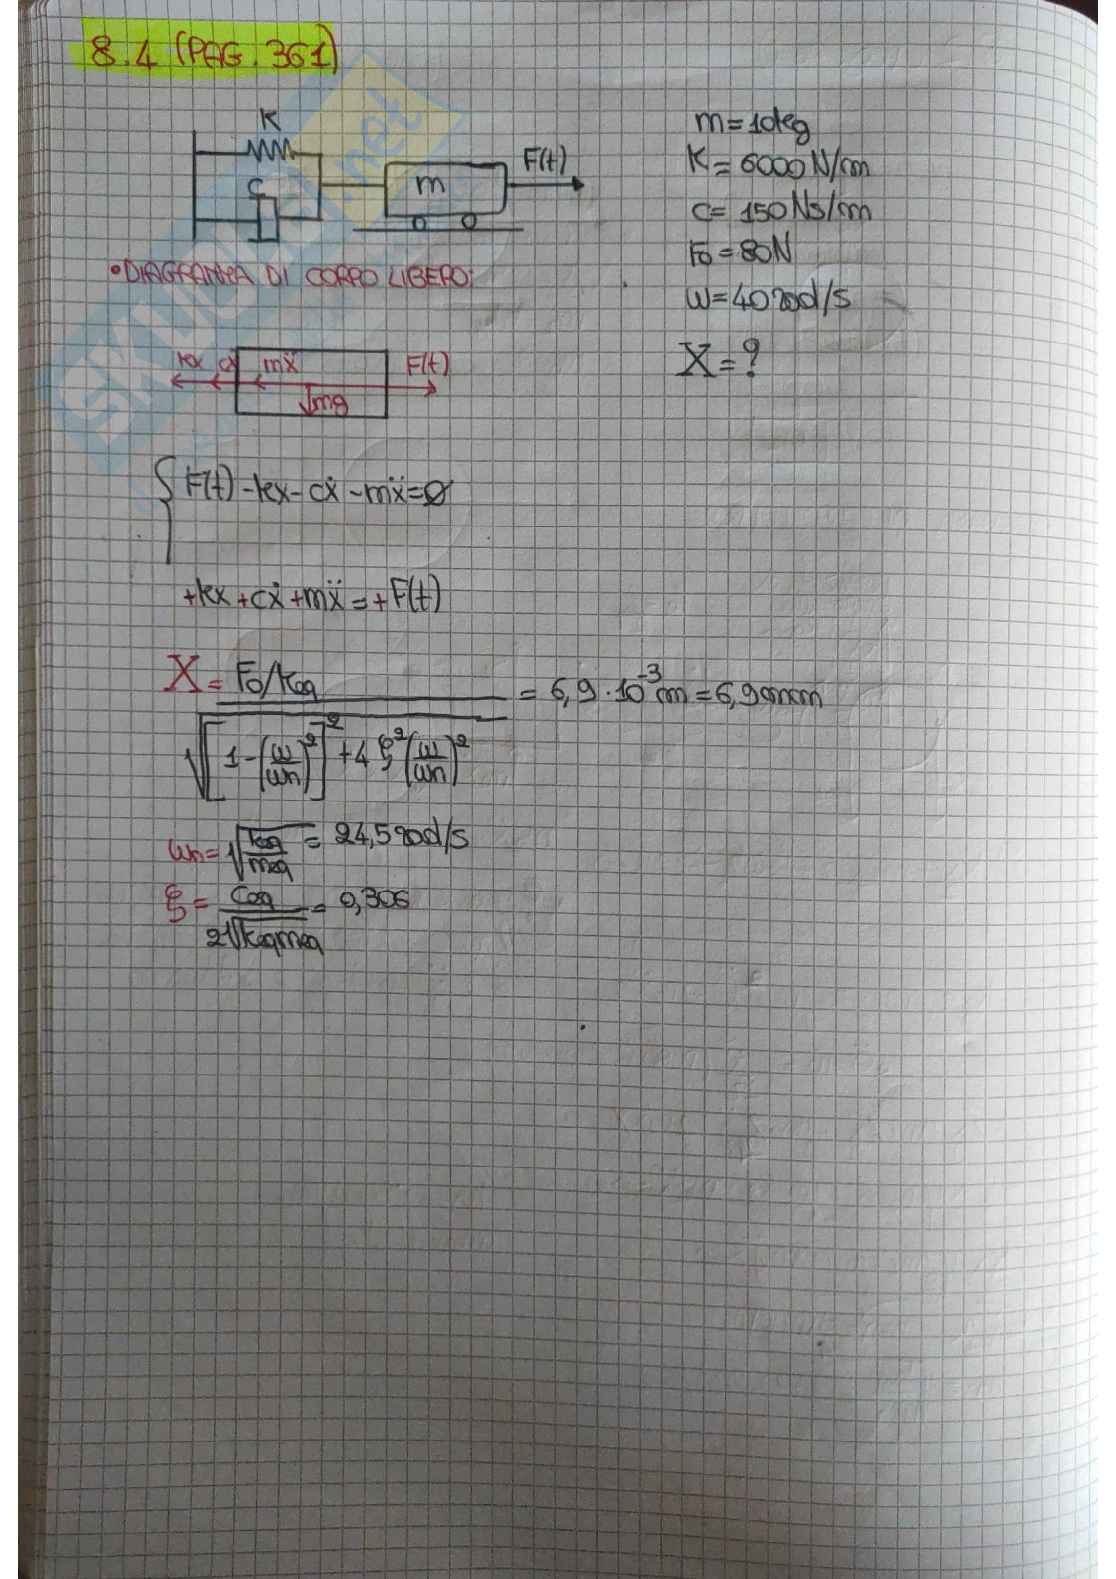 8.4 (PAG. 361)
K
C
m
F(t)
m = 10kg
K = 6000 N/m
C = 150 Ns/m
F0 = 80N
ω = 40 rad/s
X = ?
• DIAGRAMMA DI CORPO LIBERO:
kx cẋ mẍ F(t)
mg
F(t) - kx - cẋ - mẍ = 0
+kx + cẋ + mẍ = +F(t)
X = F0/keq / √([1 - (ω/ωn)²]² + 4ξ²(ω/ωn)²) = 6,9 · 10⁻³ m = 6,9 mm
ωn = √(keq/meq) = 24,5 rad/s
ξ = Ceq / 2√(keq meq) = 0,306
SKUOLA.net